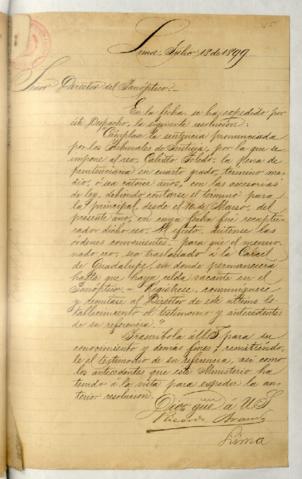 Lima, Julio 18 de 1899
Señor Director del Panóptico.
En la fecha se ha expedido por
este Despacho, la siguiente resolución:
"Cúmplase la sentencia pronunciada
por los Tribunales de Justicia, por la que se
impone al reo, Calisto Toledo, la pena de
penitenciaría en cuarto grado, término
ó sea catorce años, con las accesorias
de ley, debiendo contarse el término para
la principal, desde el de Marzo, del
presente año, en cuya fecha fué
dicho reo. Al efecto, díctense las
órdenes convenientes, para que el
reo, sea trasladado á la Cárcel
de Guadalupe, en donde permanecerá
hasta que haya celda vacante en el
Panóptico. Regístrese, comuníquese
y remítase al Director de este último
Establecimiento el testimonio y antecedentes
de su referencia."
Trascríbola á US. para su
conocimiento y demás fines; remitiéndo-
le el testimonio de su referencia, así como
los antecedentes que este Ministerio ha
tenido á la vista para expedir la an-
terior resolución.
Dios gue á US.
Ricardo
Lima